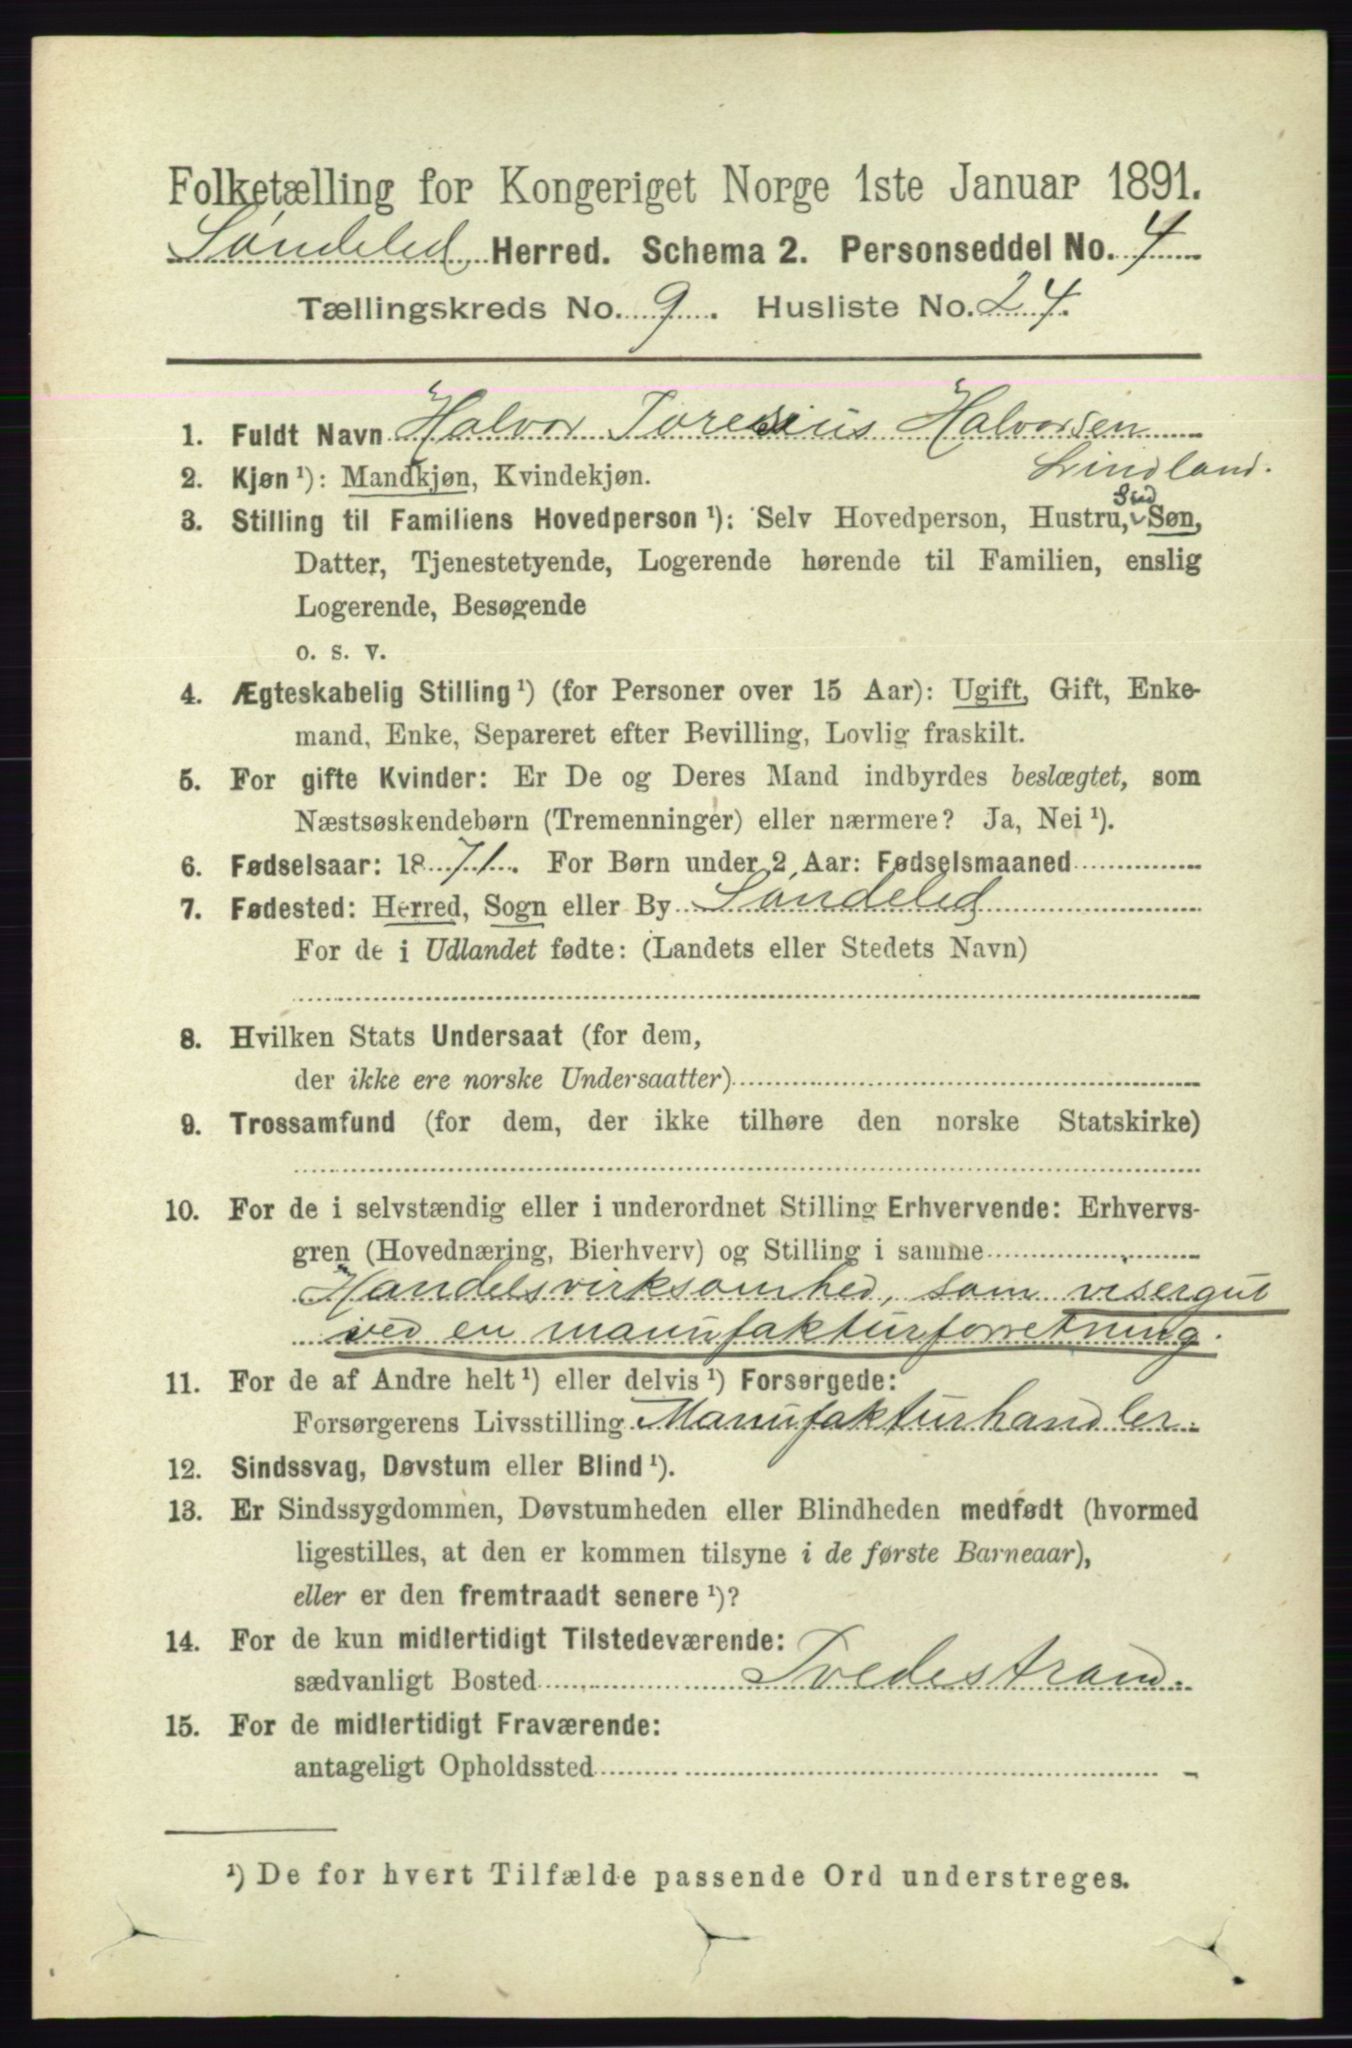 Folketælling for Kongeriget Norge 1ste Januar 1891.
Søndeled Herred. Schema 2. Personseddel No. 4
Tællingskreds No. 9. Husliste No. 24.
1. Fuldt Navn Halvor Toresius Halvorsen
Lindland.
2. Kjøn ¹): Mandkjøn, Kvindekjøn.
3. Stilling til Familiens Hovedperson ¹): Selv Hovedperson, Hustru, Søn,
Datter, Tjenestetyende, Logerende hørende til Familien, enslig
Logerende, Besøgende
o. s. v.
4. Ægteskabelig Stilling ¹) (for Personer over 15 Aar): Ugift, Gift, Enke-
mand, Enke, Separeret efter Bevilling, Lovlig fraskilt.
5. For gifte Kvinder: Er De og Deres Mand indbyrdes beslægtet, som
Næstsøskendebørn (Tremenninger) eller nærmere? Ja, Nei ¹).
6. Fødselsaar: 1871. For Børn under 2 Aar: Fødselsmaaned
7. Fødested: Herred, Sogn eller By Søndeled
For de i Udlandet fødte: (Landets eller Stedets Navn)
8. Hvilken Stats Undersaat (for dem,
der ikke ere norske Undersaatter)
9. Trossamfund (for dem, der ikke tilhøre den norske Statskirke)
10. For de i selvstændig eller i underordnet Stilling Erhvervende: Erhvervs-
gren (Hovednæring, Bierhverv) og Stilling i samme
Handelsvirksomhed, som visergut
ved en manufakturforretning.
11. For de af Andre helt ¹) eller delvis ¹) Forsørgede:
Forsørgerens Livsstilling Manufakturhandler.
12. Sindssvag, Døvstum eller Blind ¹).
13. Er Sindssygdommen, Døvstumheden eller Blindheden medfødt (hvormed
ligestilles, at den er kommen tilsyne i de første Barneaar),
eller er den fremtraadt senere ¹)?
14. For de kun midlertidigt Tilstedeværende:
sædvanligt Bosted Tvedestrand.
15. For de midlertidigt Fraværende:
antageligt Opholdssted
¹) De for hvert Tilfælde passende Ord understreges.